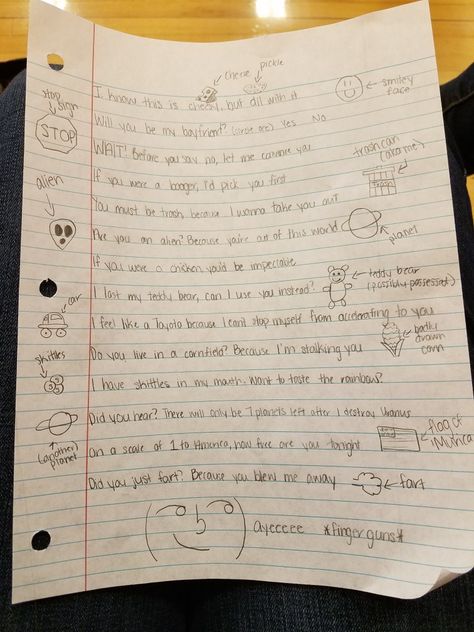 cheese pickle
I know this is cheesy, but dill with it
smiley face
stop sign
STOP
Will you be my boyfriend? (circle one) Yes No
WAIT! Before you say no, let me convince you
trashcan (aka me)
Trash
If you were a booger, I'd pick you first
alien
You must be trash, because I wanna take you out
Are you an alien? Because you're out of this world
planet
If you were a chicken, you'd be impeccable
I lost my teddy bear, can I use you instead?
teddy bear (possibly possessed)
car
I feel like a Toyota because I can't stop myself from accelerating to you
Do you live in a cornfield? Because I'm stalking you
badly drawn corn
skittles
I have skittles in my mouth. Want to taste the rainbow?
Did you hear? There will only be 7 planets left after I destroy Uranus
(another) planet
On a scale of 1 to America, how free are you tonight
flag of 'Murica
Did you just fart? Because you blew me away
fart
ayeeeee *finger guns*